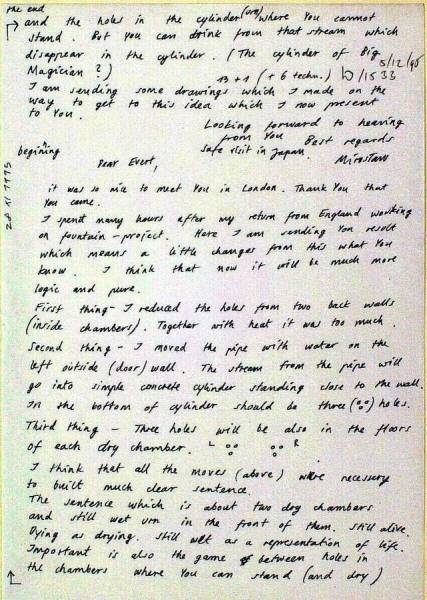 the end
and the holes in the cylinder (urn) where You cannot
stand. But You can drink from that stream which
disappear in the cylinder. (The cylinder of Big
Magician?)
5/12/95
13 + 1 (+ 6 techn.) 15 33
I am sending some drawings which I made on the
way to get to this idea which I now present
to You.
Looking forward to hearing
from You
Best regards
Safe visit in Japan.
Mirosław
beginning
28 11 1995
Dear Evert,
it was so nice to meet You in London. Thank You that
You came.
I spent many hours after my return from England working
on fountain-project. Here I am sending You result
which means a little changes from this what You
know. I think that now it will be much more
logic and pure.
First thing - I reduced the holes from two back walls
(inside chambers). Together with heat it was too much.
Second thing - I moved the pipe with water on the
left outside (door) wall. The stream from the pipe will
go into simple concrete cylinder standing close to the wall.
In the bottom of cylinder should be three (°°°) holes.
Third thing - Three holes will be also in the floors
of each dry chamber. L R
I think that all the moves (above) were necessary
to built much clear sentence.
The sentence which is about two dry chambers
and still wet urn in the front of them. Still alive.
Dying as drying. Still wet as a representation of life.
Important is also the game between holes in
the chambers where You can stand (and dry)